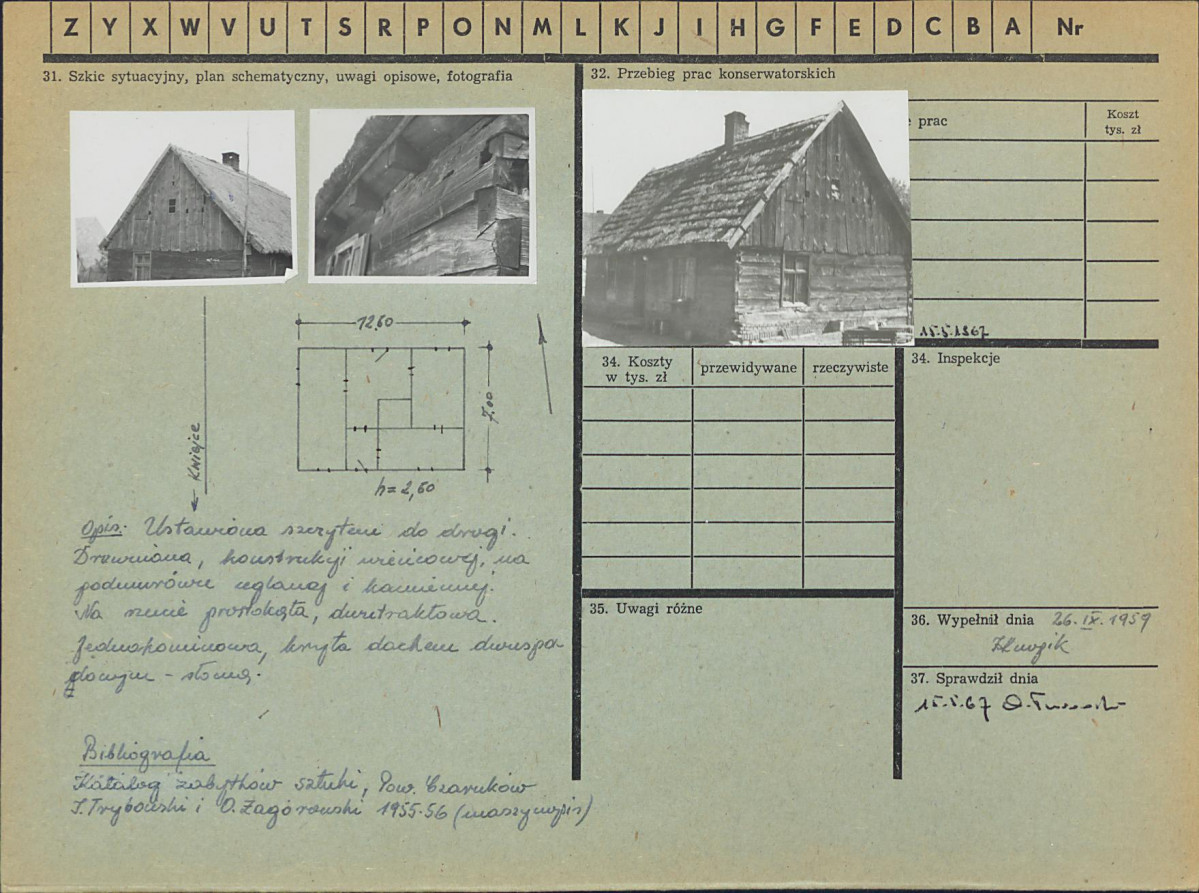 Z Y X W V U T S R P O N M L K J I H G F E D C B A Nr
31. Szkic sytuacyjny, plan schematyczny, uwagi opisowe, fotografia
12,60
7.00
h = 2,60
Kwiejce
Opis: Ustawiona szczytem do drogi.
Drewniana, konstrukcji wieńcowej, na
podmurówce ceglanej i kamiennej.
Na rzucie prostokąta, dwutraktowa.
Jednokominowa, kryta dachem dwuspa-
dowym - słomą.
Bibliografia
Katalog zabytków sztuki, Pow. Czarnków
i O. Zagórowski 1955-56 (maszynopis)
32. Przebieg prac konserwatorskich
prac
Koszt
tys. zł
15.5.1967
34. Koszty
w tys. zł
przewidywane
rzeczywiste
34. Inspekcje
35. Uwagi różne
36. Wypełnił dnia 26.IX.1959
37. Sprawdził dnia
15.5.67